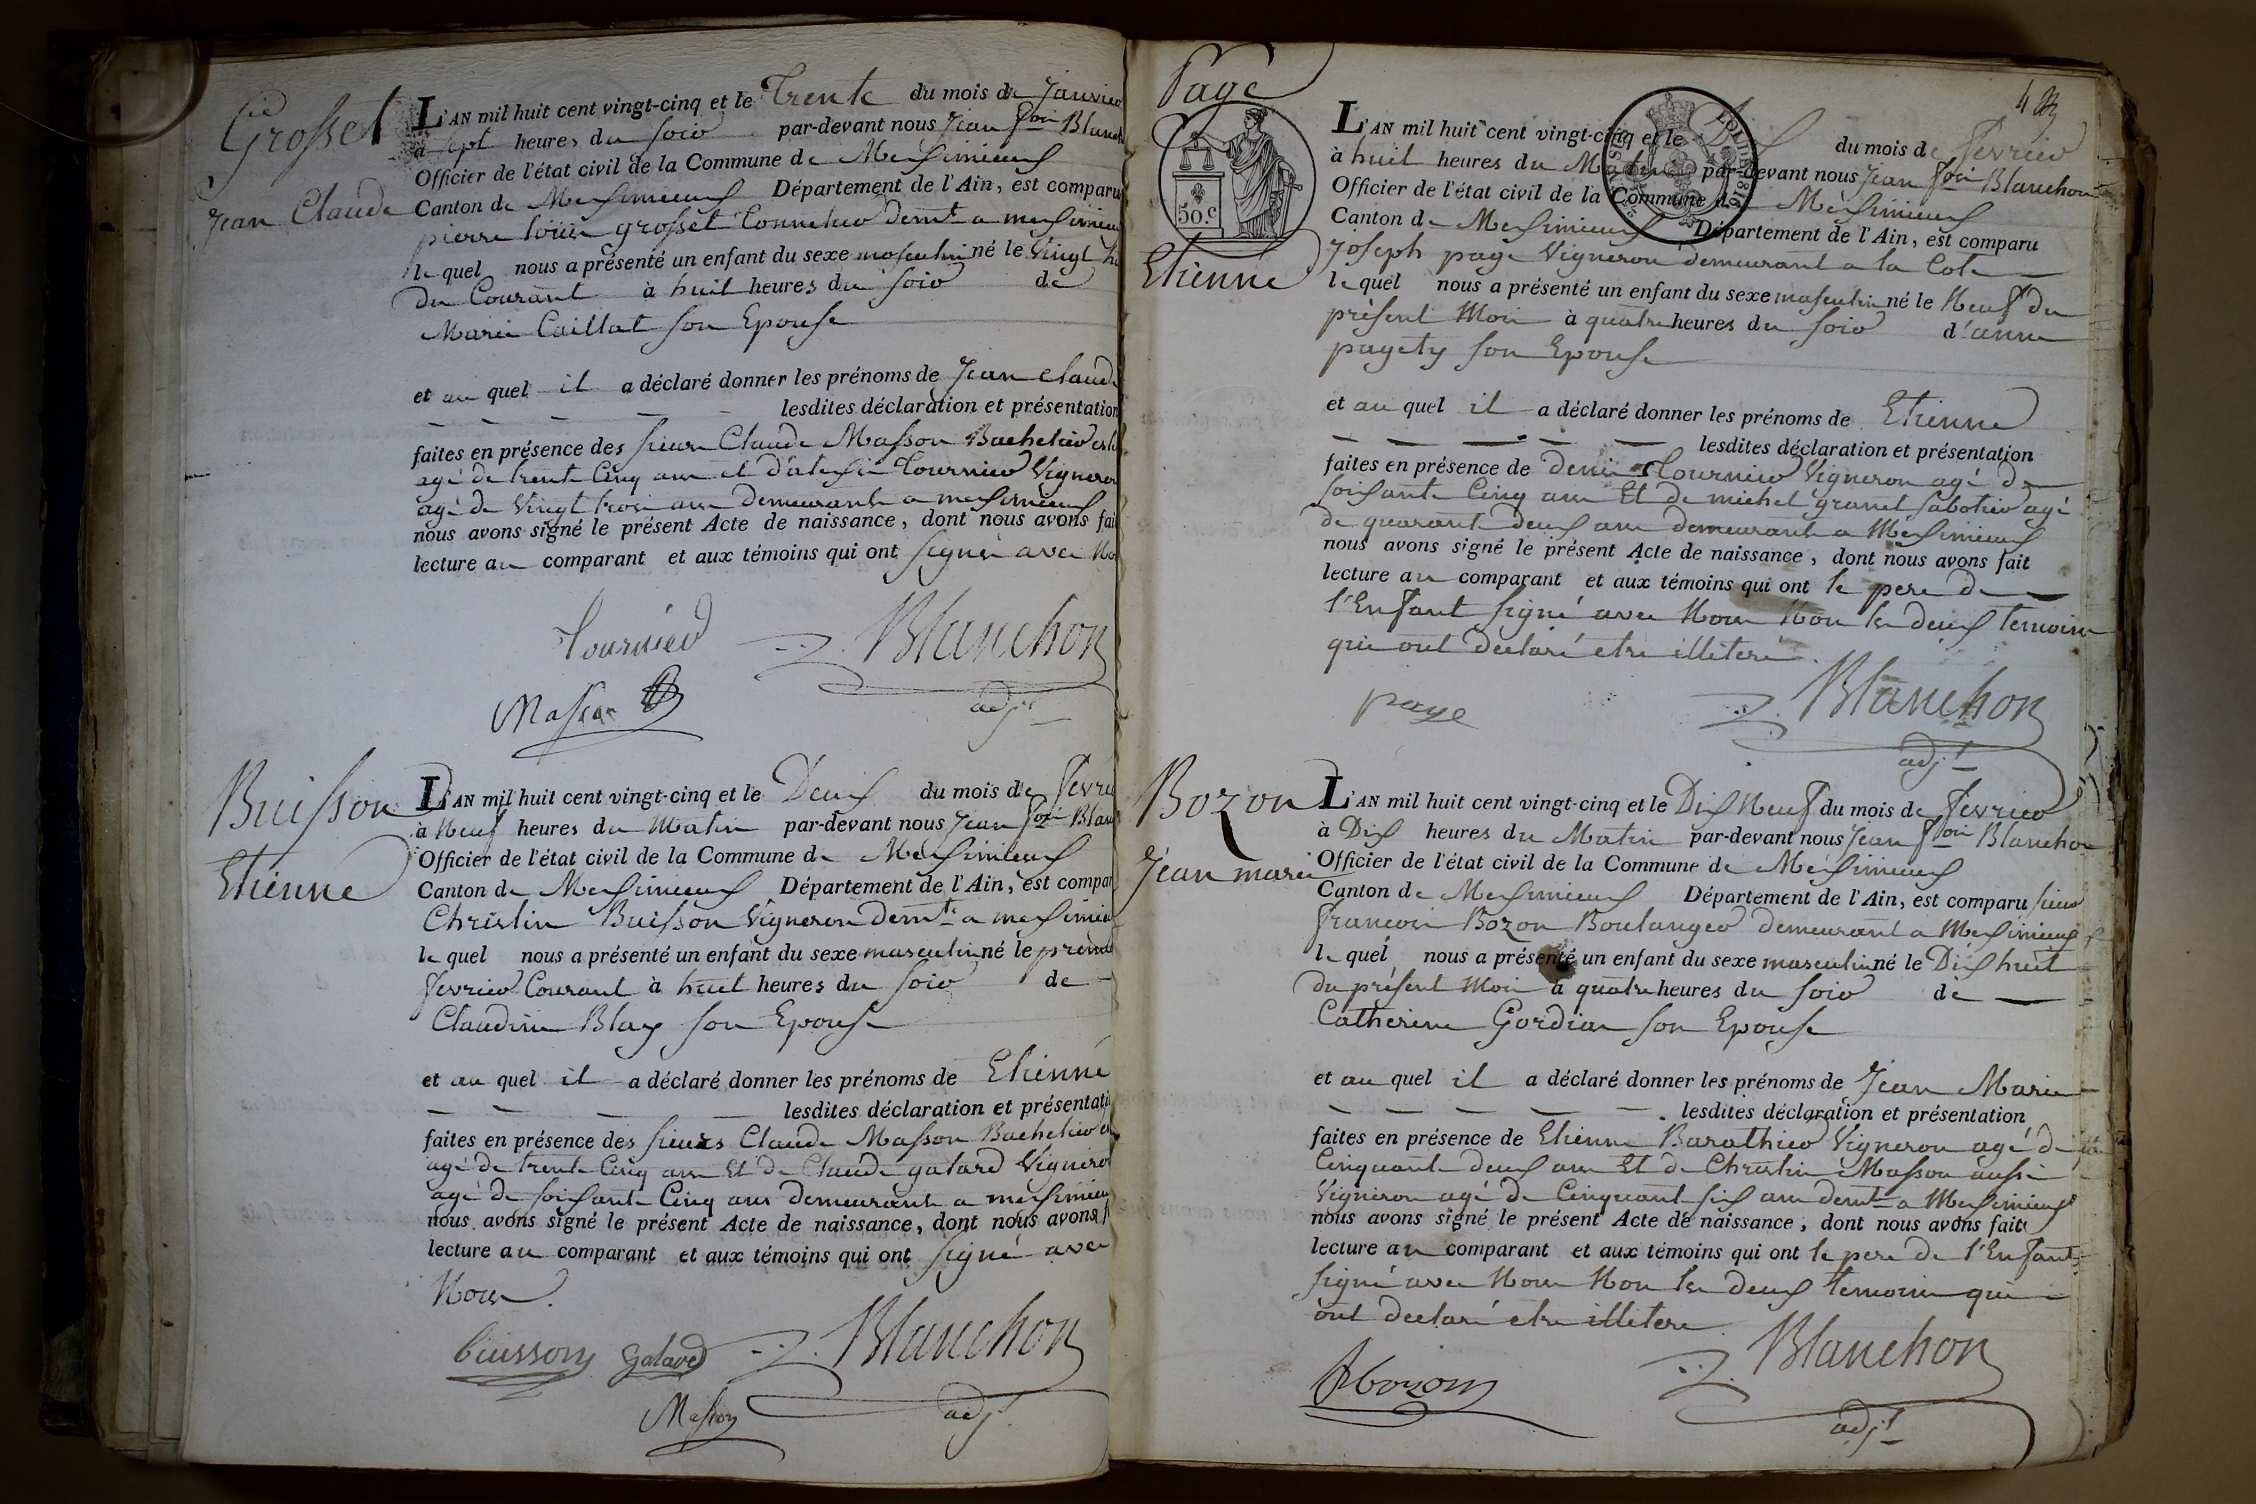 Grosset
Jean Claude
L'AN mil huit cent vingt-cinq et le Trente du mois de Janvier
à sept heures du soir par-devant nous Jean fois Blanch
Officier de l'état civil de la Commune de Meximieux
Canton de Meximieux Département de l'Ain, est comparu
pierre louis grosset Tonnelier demt a meximieu
le quel nous a présenté un enfant du sexe masculin né le Vingt
du Courant à huit heures du soir de
Marie Caillat son Epouse
et au quel il a déclaré donner les prénoms de Jean Claude
lesdites déclaration et présentation
faites en présence des sieurs Claude Masson Bachelier
agé de trente Cinq ans et d' Tournier Vigneron
agé de Vingt trois ans demeurants a meximieux
nous avons signé le présent Acte de naissance, dont nous avons fai
lecture au comparant et aux témoins qui ont signés avec No
Tournier Blanchon
Masson adjt
Buisson
Etienne
L'AN mil huit cent vingt-cinq et le Deux du mois de fevri
à Neuf heures du Matin par-devant nous Jean fois Blan
Officier de l'état civil de la Commune de Meximieux
Canton de Meximieux Département de l'Ain, est compar
Christin Buisson Vigneron demt a meximie
le quel nous a présenté un enfant du sexe masculin né le premi
fevrier Courant à huit heures du soir de
Claudine Blay son Epouse
et au quel il a déclaré donner les prénoms de Etienne
lesdites déclaration et présentati
faites en présence des sieurs Claude Masson Bachelier
agé de trente Cinq ans Et de Claude galard Vignero
agé de soixante Cinq ans demeurants a meximieu
nous avons signé le présent Acte de naissance, dont nous avons
lecture au comparant et aux témoins qui ont signé avec
Nous.
buisson galard Blanchon
Masson adjt
Page
Etienne
50.c
4
L'AN mil huit cent vingt-cinq et le Dix du mois de fevrier
à huit heures du Matin par-devant nous Jean fois Blanchon
Officier de l'état civil de la Commune de Meximieux
Canton de Meximieux Département de l'Ain, est comparu
Joseph page Vigneron demeurant a la Cote
le quel nous a présenté un enfant du sexe masculin né le Neuf du
présent Mois à quatre heures du soir d'anne
pagety son Epouse
et au quel il a déclaré donner les prénoms de Etienne
lesdites déclaration et présentation
faites en présence de denis Tournier Vigneron agé de
soixante Cinq ans Et de michel granet sabotier agé
de quarante deux ans demeurants a Meximieux
nous avons signé le présent Acte de naissance, dont nous avons fait
lecture au comparant et aux témoins qui ont le pere de
l'Enfant signé avec Nous Non les deux temoins
qui ont déclaré etre illiteré.
page Blanchon
adjt
Bozon
Jean marie
L'AN mil huit cent vingt-cinq et le Dix Neuf du mois de fevrier
à Dix heures du Matin par-devant nous Jean fois Blanchon
Officier de l'état civil de la Commune de Meximieux
Canton de Meximieux Département de l'Ain, est comparu sieur
francois Bozon Boulanger demeurant a Meximieux
le quel nous a présenté un enfant du sexe masculin né le Dix huit
du présent Mois à quatre heures du soir de
Catherine Gordian son Epouse
et au quel il a déclaré donner les prénoms de Jean Marie
lesdites déclaration et présentation
faites en présence de Etienne Barathier Vigneron agé de
Cinquante deux ans Et de Christin Masson aussi
Vigneron agé de Cinquante six ans demt a Meximieux
nous avons signé le présent Acte de naissance, dont nous avons fait
lecture au comparant et aux témoins qui ont le pere de l'Enfant
signé avec Nous Non les deux temoins qui
ont declaré etre illiteré
fbozon Blanchon
adjt